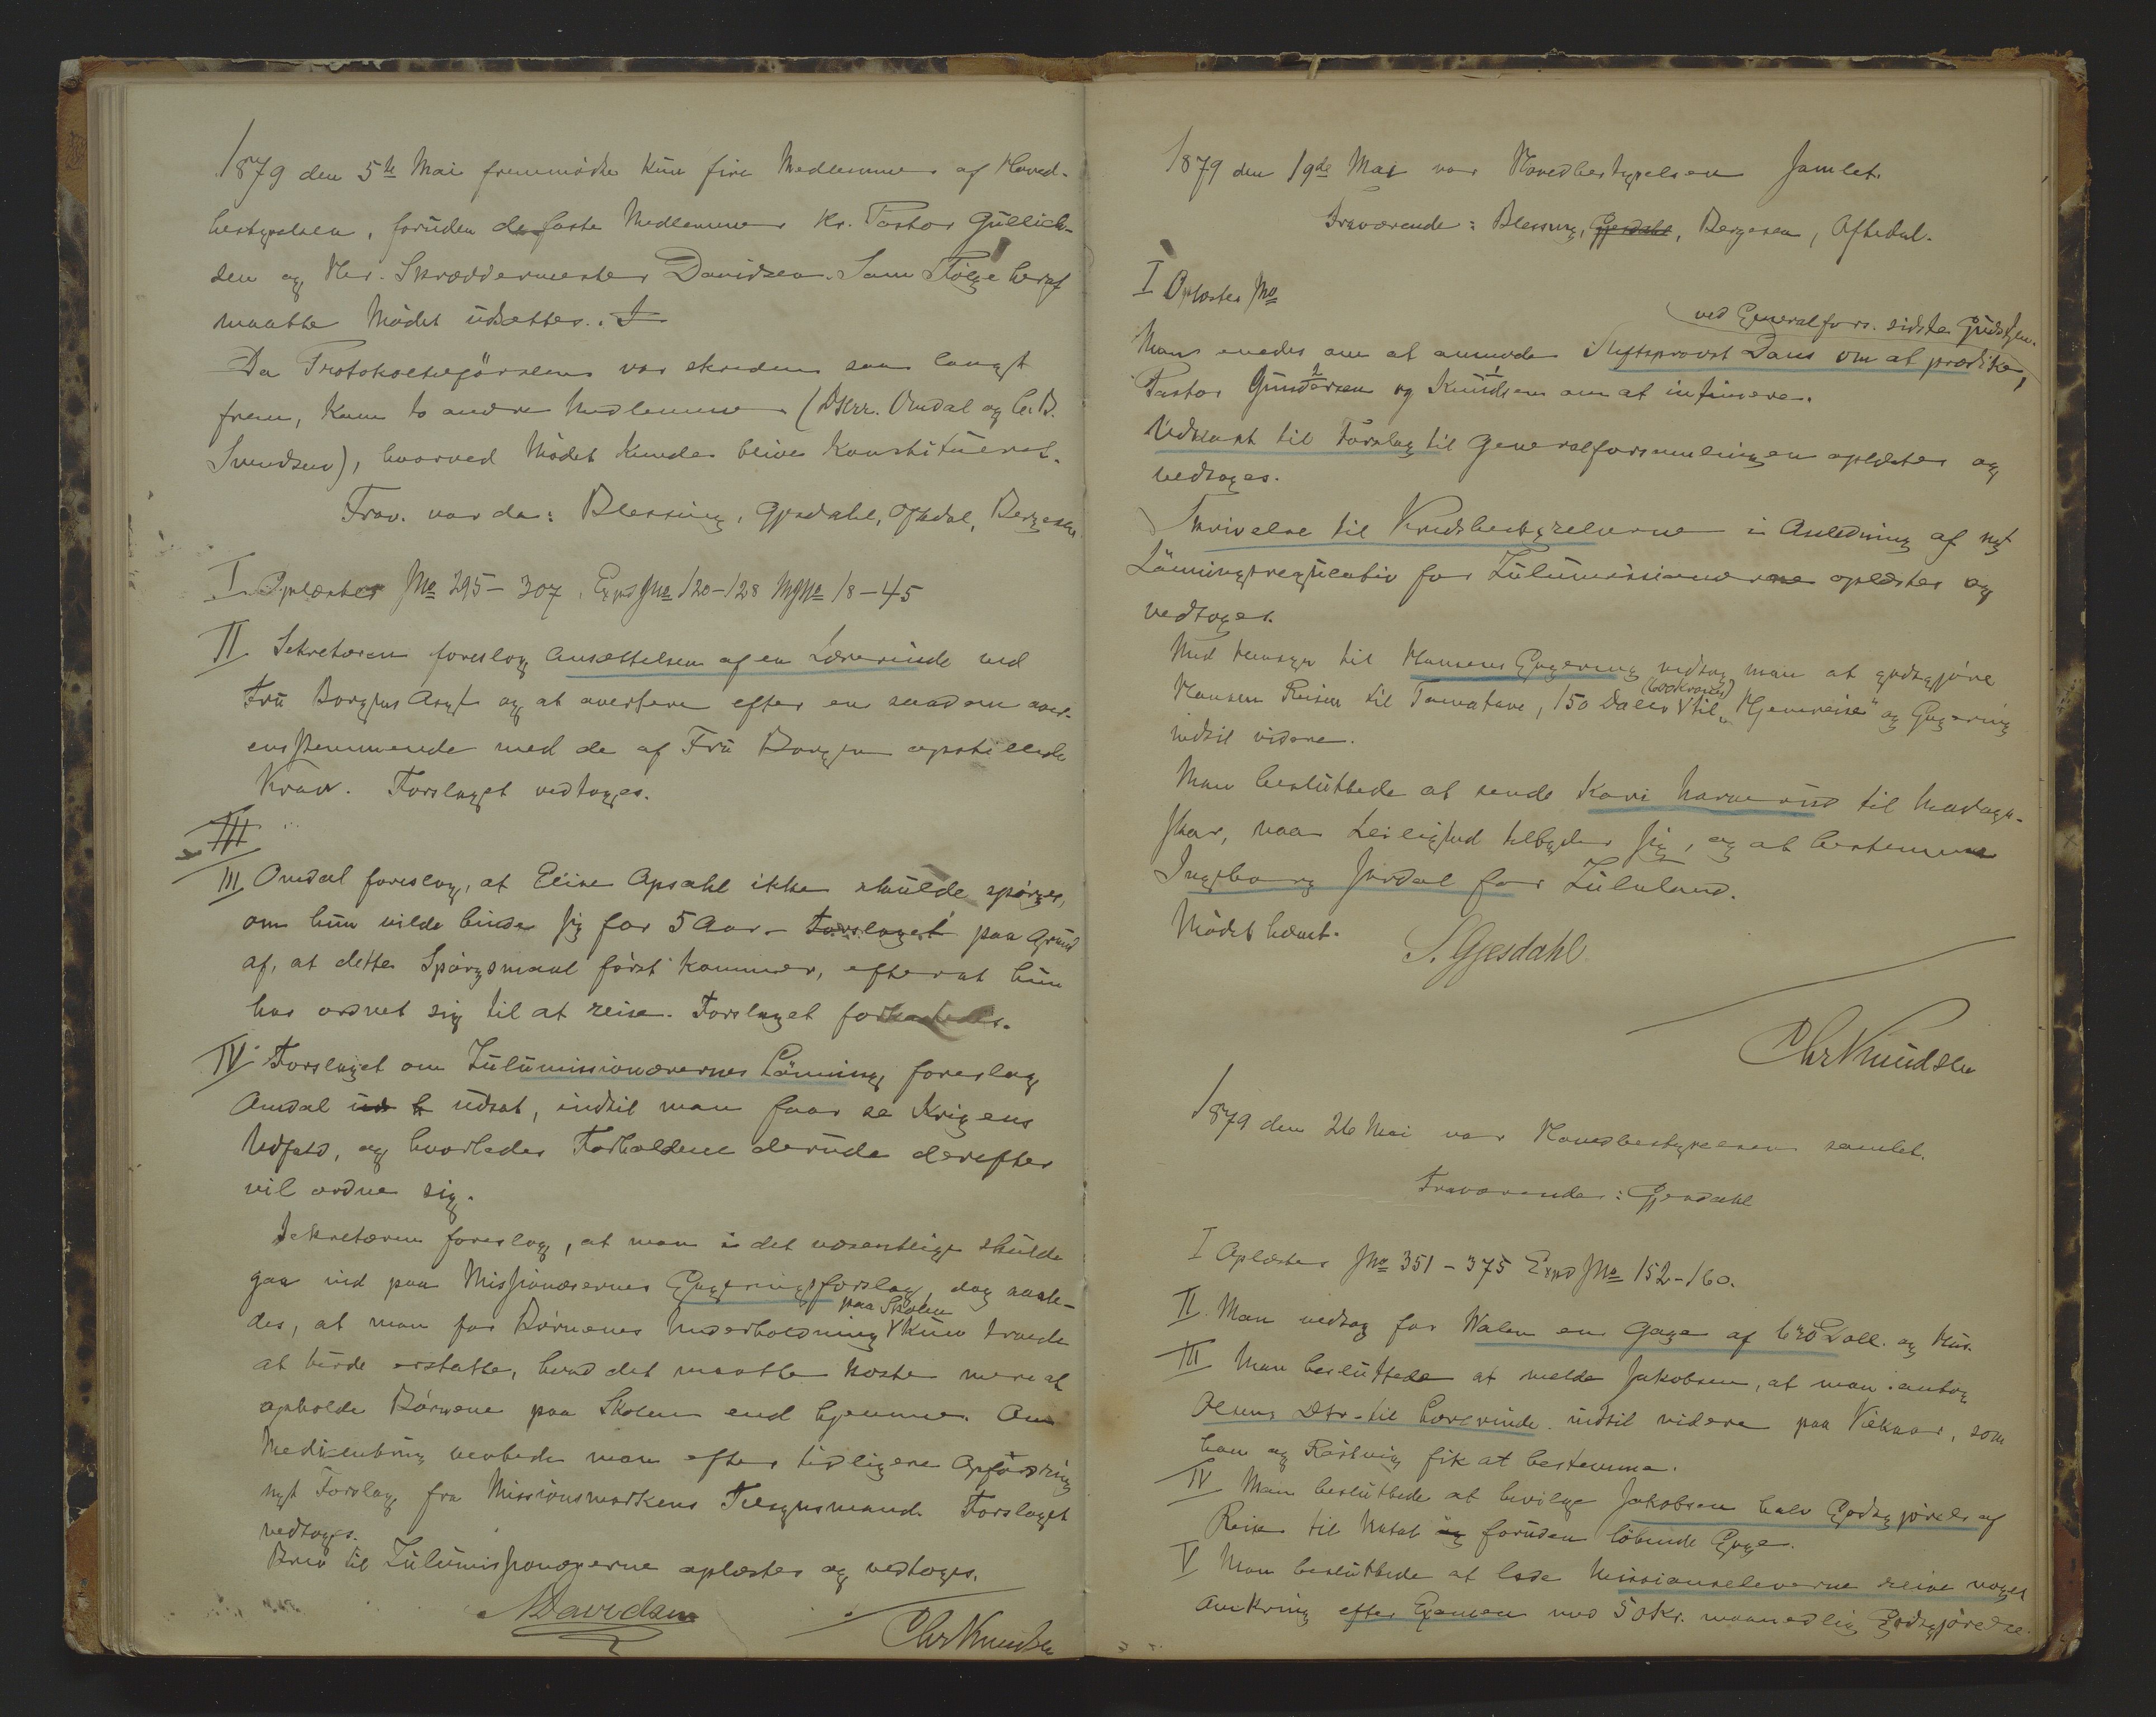 1879 den 5te Mai fremmødte kun fire Medlemmer af Hoved-
bestyrelsen, foruden de faste Medlemmer Hr. Pastor Gullich-
sen og Hr. Skræddermester Davidsen. Som Følge heraf
maatte Mødet udsættes. I
Da Protokoltilførselen var skreden saa langt
frem, kom to andre Medlemmer (DHrr. Omdal og C. B.
Svendsen), hvorved Mødet kunde blive konstitueret.
Frav. var da: Blessing, Gjesdahl, Oftedal, Bergesen
I Oplæstes JNo 295-307, ExpdJNo 120-128 MJNo 18-45
II. Sekretæren foreslog Ansættelsen af en Lærerinde ved
Fru Borgens Asyl og at avertere efter en saadan over-
ensstemmende med de af Fru Borgen opstillede
Krav. Forslaget vedtoges.
III
III Omdal foreslog, at Elise Opsahl ikke skulde spørges,
om hun vilde binde sig for 5 Aar - Forslaget paa Grund
af, at dette Spørgsmaal først kommer, efterat hun
har ordnet sig til at reise. Forslaget forkastedes.
IV Forslaget om Zulumissionærernes Lønning foreslog
Omdal udsat, indtil man faar se Krigens
Udfald, og hvorledes Forholdene derude derefter
vil ordne sig.
Sekretæren foreslog, at man i det væsentlige skulde
gaa ind paa Missionærernes Gageringsforslag, dog saale-
des, at man for Børnenes Underholdning paa Skolen kun troede
at burde erstatte, hvad det maatte koste mere at
opholde Børnene paa Skolen end hjemme. Om
Medicinbrug ventede man efter tidligere Opfordring
nyt Forslag fra Missionsmarkens Tilsynsmand. Forslaget
vedtoges.
Brev til Zulumissionærerne oplæstes og vedtoges.
ADavidsen
Chr Knudsen
1879 den 19de Mai var Hovedbestyrelsen samlet.
Fraværende: Blessing, Gjesdahl, Bergesen, Oftedal.
I Oplæstes JNo
ved Generalfors. sidste Gudstjen.
Man enedes om at anmode Stiftsprovst Daus om at prædike,
Pastor Gundersen og Knudsen om at intimere.
Udkast til Forslag til Generalforsamlingen oplæstes og
vedtoges.
Skrivelse til Kredsbestyrelserne i Anledning af nyt
Lønningsregulativ for Zulumissionærerne oplæstes og
vedtoges.
Med Hensyn til Hansens Gagering vedtog man at godtgjøre
Hansen Reisen til Tamatave, 150 Daler (600 Kroner) til "Hjemreise" og Gagering
indtil videre.
Man besluttede at sende Kari til Madaga-
skar, naar Leilighed tilbyder sig, og at bestemme
Ingeborg Jordal for Zululand.
Mødet hævet.
S. Gjesdahl
Chr Knudsen
1879 den 26 Mai var Hovedbestyrelsen samlet.
Fraværende: Gjesdahl
I Oplæstes JNo 351-375 ExpdJNo 152-160.
II. Man vedtog for Walen en Gage af 630 Doll. og Hus.
III Man besluttede at melde Jakobsen, at man antog
Olsens Dtr. til Lærerinde indtil videre paa Vilkaar, som
han og Røstvig fik at bestemme.
IV Man besluttede at bevilge Jakobsen halv Godtgjørelse af
Reise til Natal og foruden løbende Gage.
V Man besluttede at lade Missionseleverne reise noget
omkring efter Examen med 50 Kr. maanedlig Godtgjørelse.